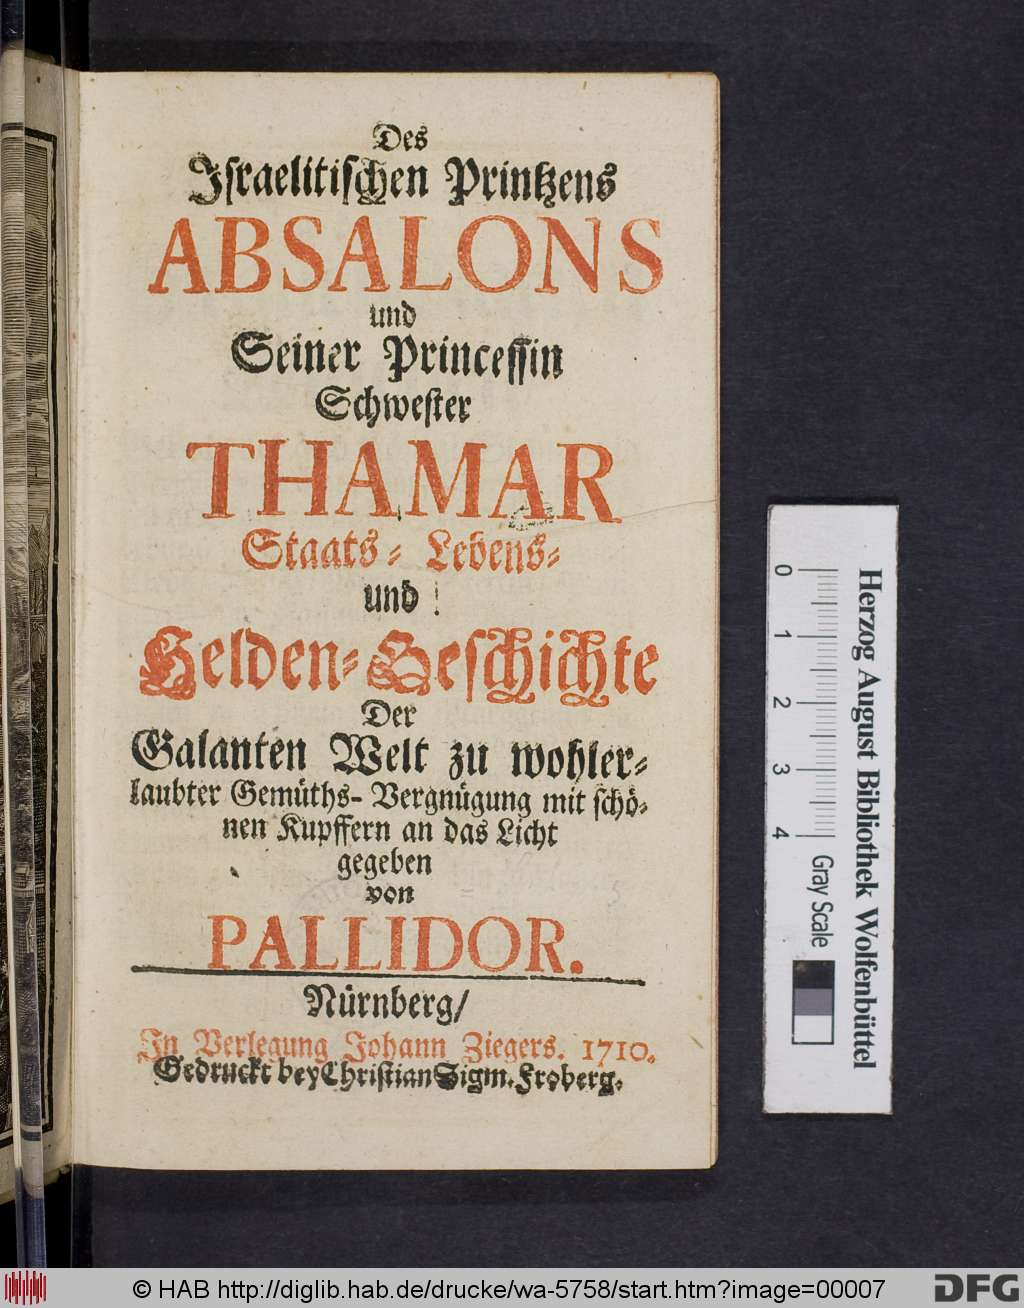 Des
Israelitischen Printzens
ABSALONS
und
Seiner Princessin
Schwester
THAMAR
Staats- Lebens-
und
Helden-Geschichte
Der
Galanten Welt zu wohler-
laubter Gemüths-Vergnügung mit schö-
nen Kupffern an das Licht
gegeben
von
PALLIDOR.
Nürnberg/
In Verlegung Johann Ziegers. 1710.
Gedruckt bey Christian Sigm. Froberg.
0 1 2 3 4
Gray Scale
Herzog August Bibliothek Wolfenbüttel
© HAB http://diglib.hab.de/drucke/wa-5758/start.htm?image=00007
DFG